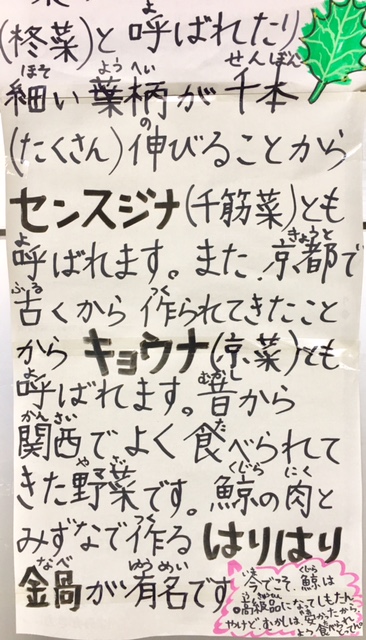 (柊菜)と呼ばれたり
細い葉柄が千本
(たくさん)伸びることから
センスジナ(千筋菜)とも
呼ばれます。また、京都で
古くから作られてきたこと
から キョウナ(京菜)とも
呼ばれます。昔から
関西でよく食べられて
きた野菜です。鯨の肉と
みずなで作る はりはり
金鍋が有名です
今でこそ、鯨は
高級品になってしもたん
やけど、むかしは、安かったから、
よう食べれてん。